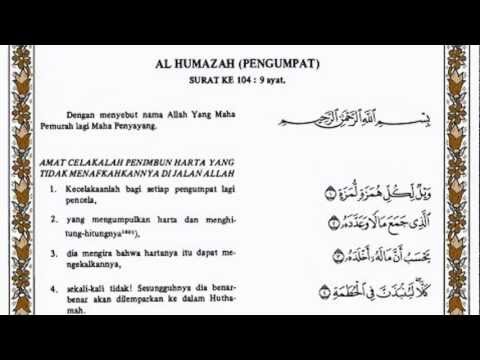 AL HUMAZAH (PENGUMPAT)
SURAT KE 104 : 9 ayat.
Dengan menyebut nama Allah Yang Maha
Pemurah lagi Maha Penyayang.
بِسْمِ اللَّهِ الرَّحْمَٰنِ الرَّحِيمِ
AMAT CELAKALAH PENIMBUN HARTA YANG
TIDAK MENAFKAHKANNYA DI JALAN ALLAH
1. Kecelakaanlah bagi setiap pengumpat lagi
pencela,
وَيْلٌ لِّكُلِّ هُمَزَةٍ لُّمَزَةٍ ﴿١﴾
2. yang mengumpulkan harta dan menghi-
tung-hitungnya¹⁶⁰¹⁾,
الَّذِي جَمَعَ مَالًا وَعَدَّدَهُ ﴿٢﴾
3. dia mengira bahwa hartanya itu dapat me-
ngekalkannya,
يَحْسَبُ أَنَّ مَالَهُ أَخْلَدَهُ ﴿٣﴾
4. sekali-kali tidak! Sesungguhnya dia benar-
benar akan dilemparkan ke dalam Hutha-
mah.
كَلَّا لَيُنبَذَنَّ فِي الْحُطَمَةِ ﴿٤﴾